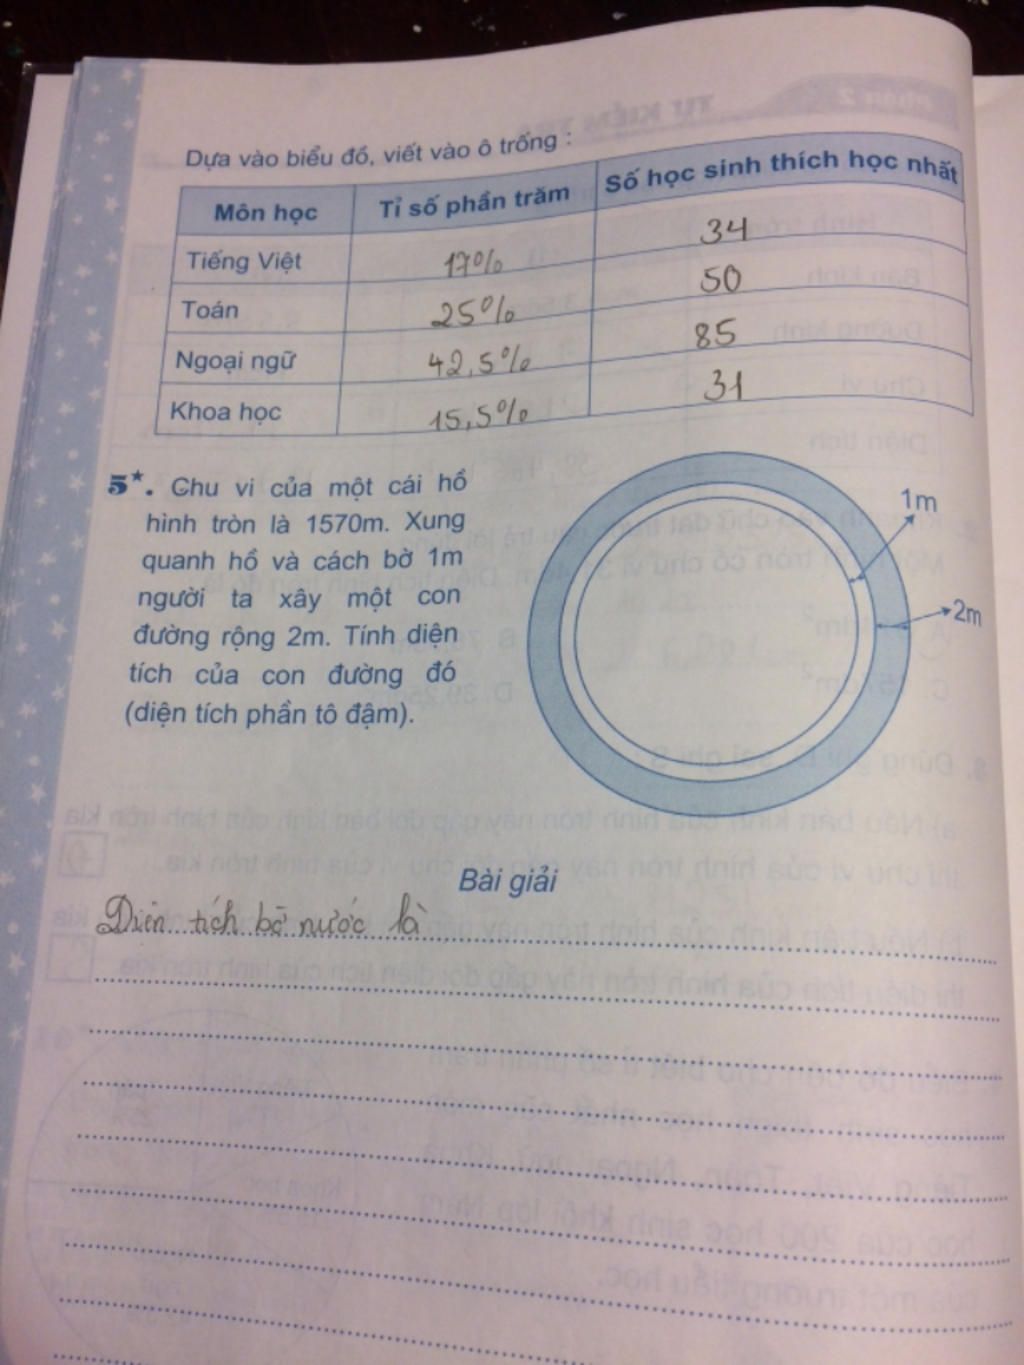 Dựa vào biểu đồ, viết vào ô trống :
Môn học Tỉ số phần trăm Số học sinh thích học nhất
Tiếng Việt 17% 34
Toán 25% 50
Ngoại ngữ 42,5% 85
Khoa học 15,5% 31
5*. Chu vi của một cái hồ
hình tròn là 1570m. Xung
quanh hồ và cách bờ 1m
người ta xây một con
đường rộng 2m. Tính diện
tích của con đường đó
(diện tích phần tô đậm).
1m
2m
Bài giải
Diện tích bờ nước là